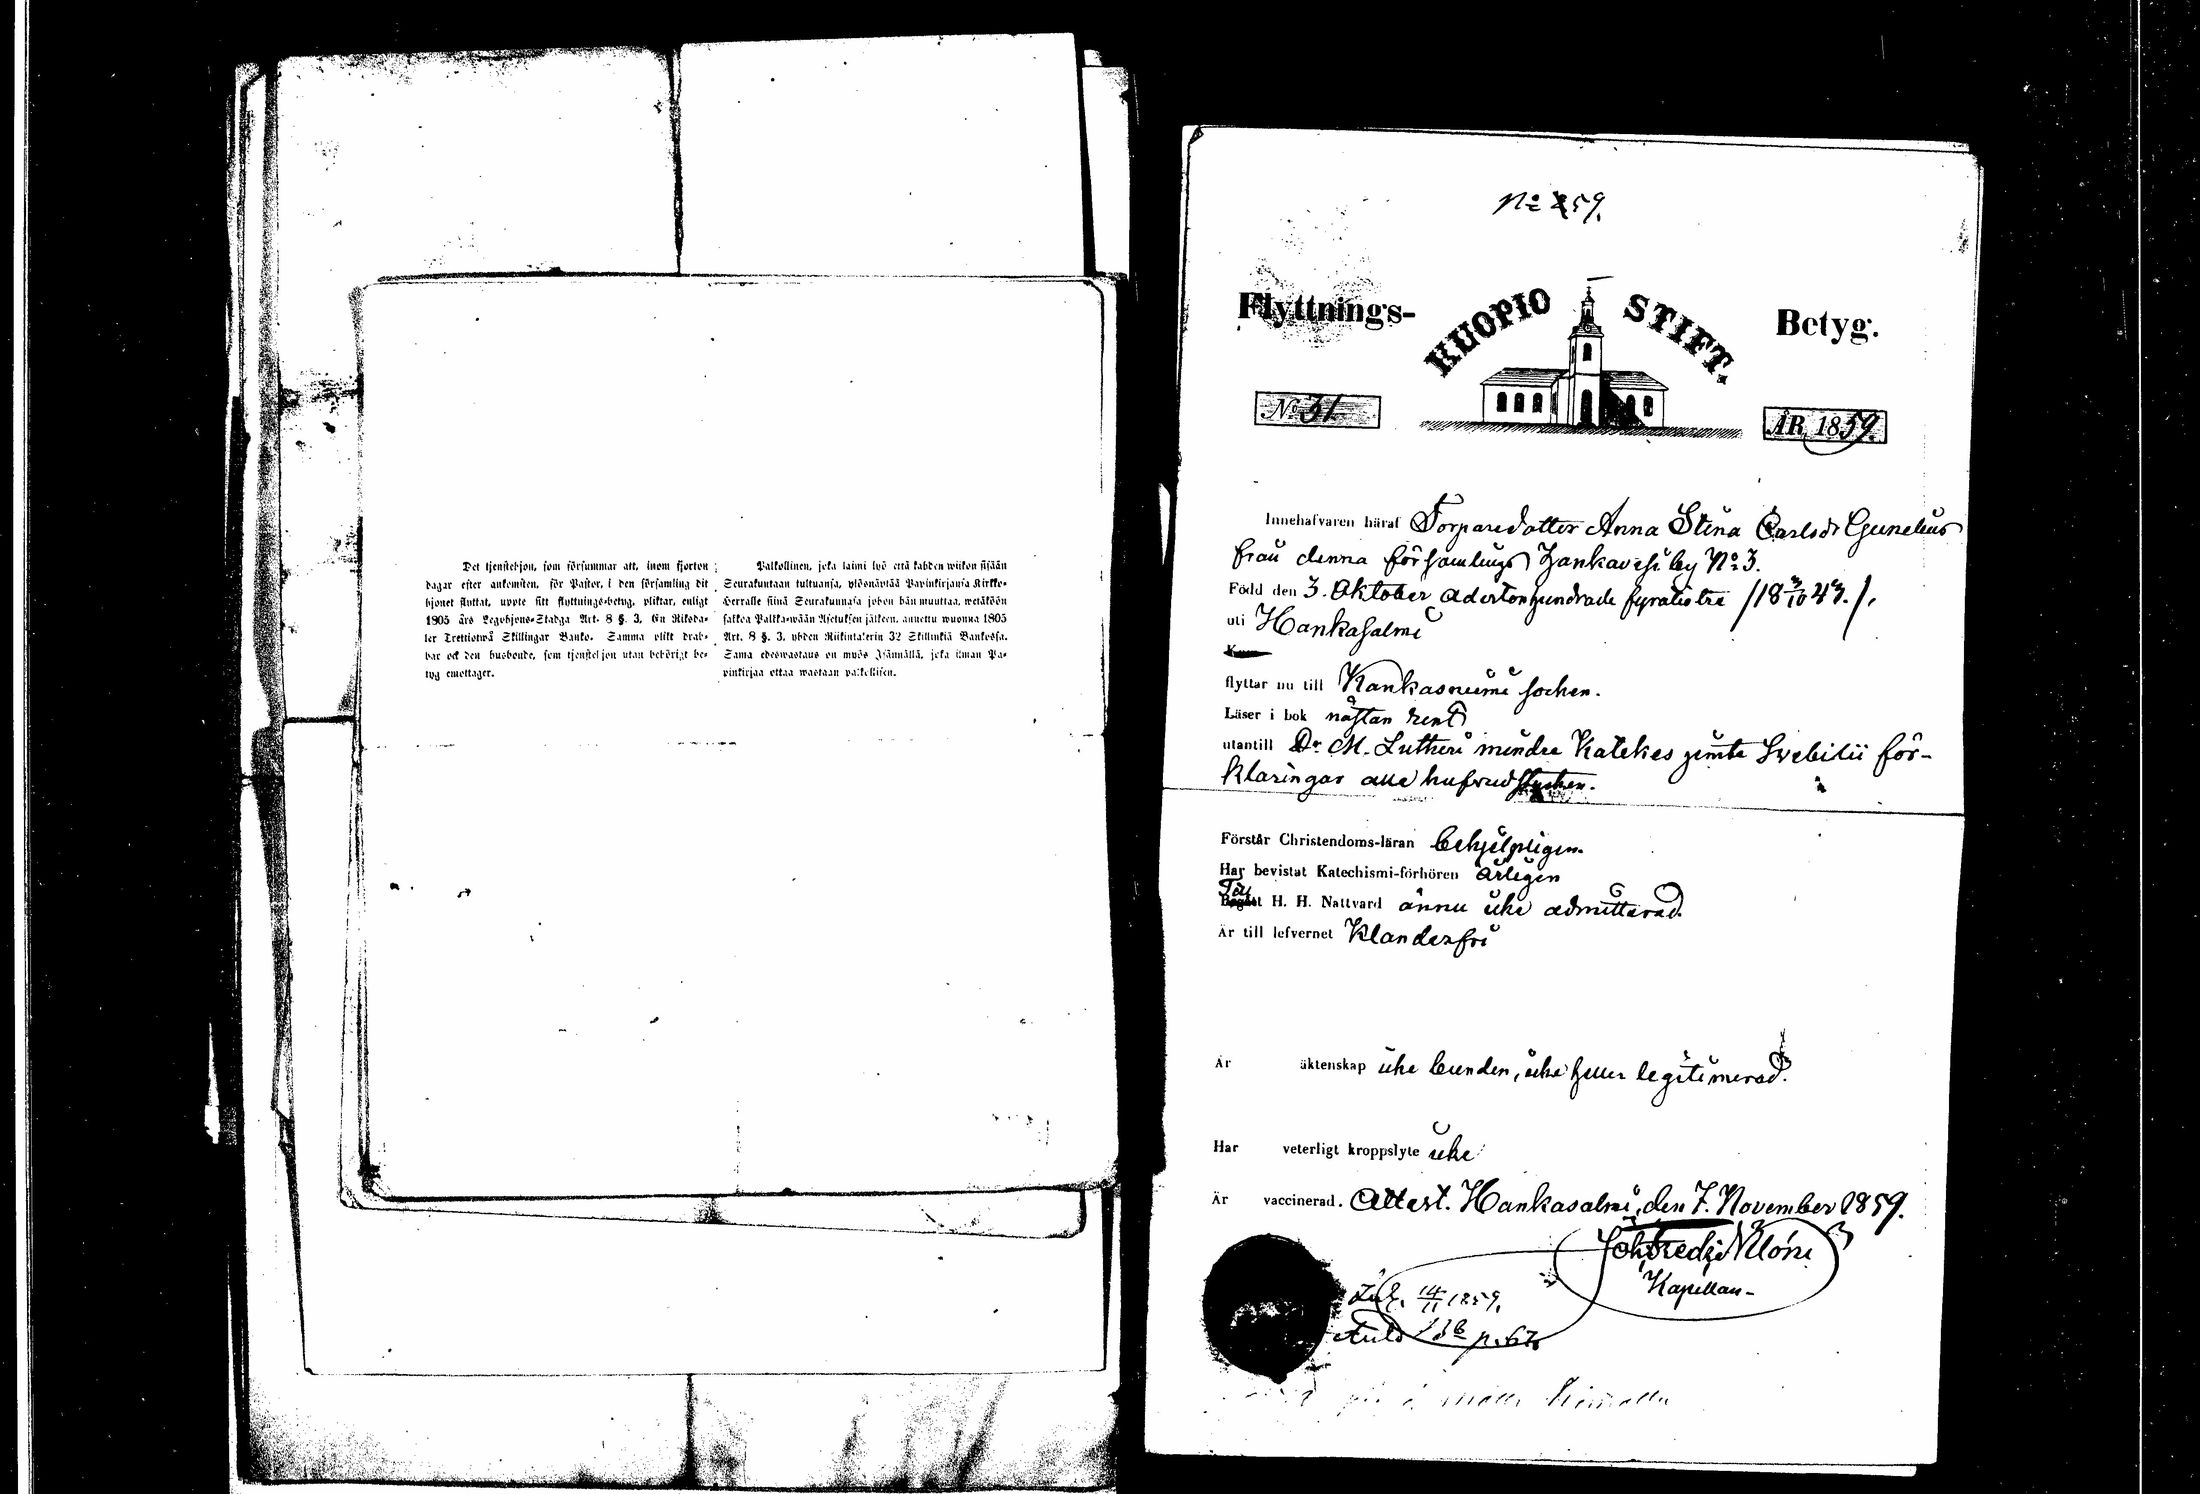 Det tjenstehjon, som försummar att, inom fjorton
dagar efter ankomsten, för Pastor, i den församling dit
hjonet flyttat, uppte sitt flyttnings-betyg, pliktar, enligt
1805 års Legohjons-Stadga Art. 8 §. 3, En Riksda-
ler Trettiotwå Skillingar Banko. Samma plikt drab-
bar ock den husbonde, som tjenstehjon utan behörigt be-
tyg emottager.
Palkollinen, joka laimi lyö että kahden wiikon sisään
Seurakuntaan tultuansa, ylösnäyttää Papinkirjansa Kirkko-
herralle siinä Seurakunnasa johon hän muuttaa, wetäköön
sakkoa Palkka-wään Asetuksen jälkeen, annettu wuonna 1805
Art. 8 §. 3, yhden Riikintalerin 32 Skillinkiä Bankossa.
Sama edeswastaus on myös Isännällä, joka ilman Pa-
pinkirjaa ottaa wastaan palkollisen.
No 59.
Flyttnings- KUOPIO STIFT. Betyg.
No 31 ÅR 1859.
Innehafvaren häraf Torparedotter Anna Stina Carlsdr Gynelius
från denna församlings Hankavesi by No 3.
Född den 3. Oktober adertonhundrade fyratiotre /18 3/10 43./,
uti Hankasalmi
flyttar nu till Kankasniemi socken.
Läser i bok nästan rent
utantill Dr M. Lutheri mindre Katekes jemte Svebilii för-
klaringar alla hufvudstycken.
Förstår Christendoms-läran behjelpligen.
Har bevistat Katechismi-förhören årligen
Till H. H. Nattvard ännu icke admitterad.
Är till lefvernet klanderfri
Är äktenskap icke bunden, icke heller legitimerad.
Har veterligt kroppslyte icke
Är vaccinerad. Attest. Hankasalmi, den 7. November 1859.
Kapellan-
14/11 1859.
p. 67